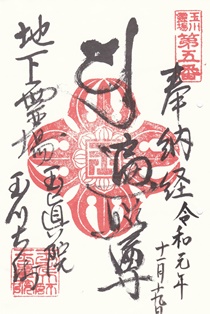 玉川
霊場
第五番
奉納経
令和元年
十一月十九日
遍照尊
地下霊場玉真院
玉川大師